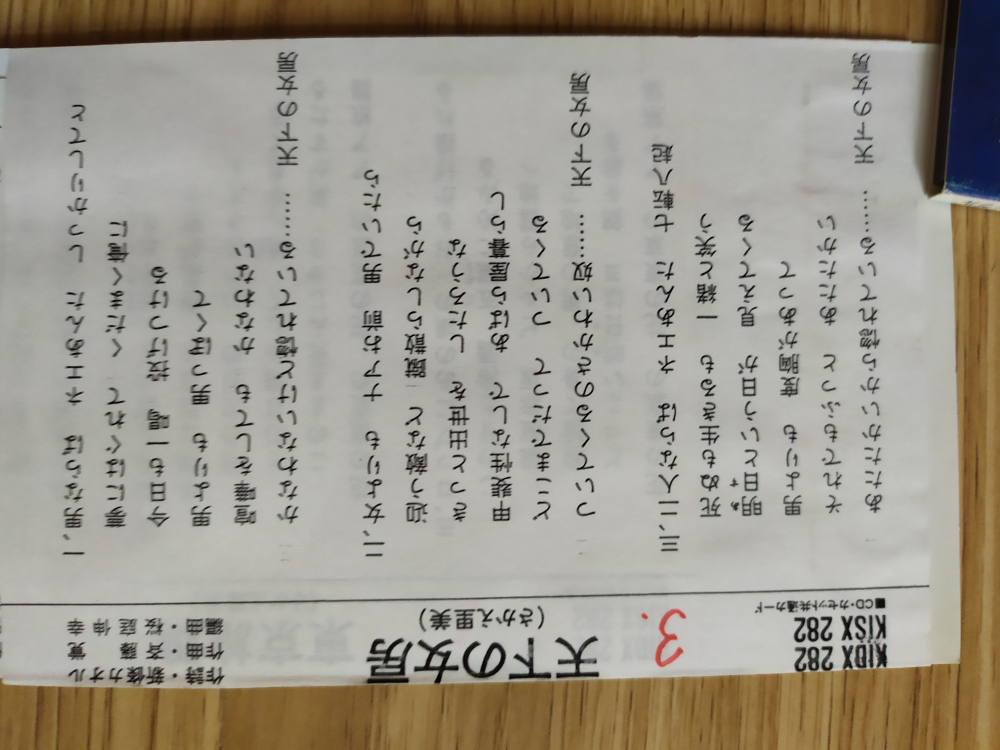 KIDX 282
KISX 282
■CD・カセット共通カード
3.
天下の女房
(さかえ里美)
作詩・新條カオル
作曲・斉藤 覚
編曲・桜庭伸幸
一、男ならば ネエあんた しっかりしてと
夢にはぐれて くだまく俺に
今日も一喝 投げつける
男よりも 男っぽくて
喧嘩をしても かなわない
かなわないけど惚れている…… 天下の女房
二、女よりも ナアお前 男でいたら
迎う敵など 蹴散らしながら
きっと出世を したろうな
甲斐性なしで あばら屋暮らし
どこまでだって ついてくる
ついてくるのさかわい奴…… 天下の女房
三、二人ならば ネエあんた 七転八起
死ぬも生きるも 一緒と笑う
明日という日が 見えてくる
あす
男よりも 度胸があって
それでもふっと あたたかい
あたたかいから惚れている…… 天下の女房